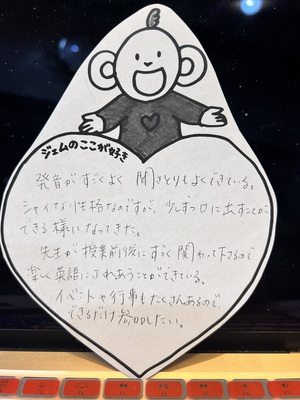 ジェムのここが好き
発音がすごくよく 聞きとりもよくできている。
シャイな性格なのですが、少しずつ口に出すことが
できる様になってきた。
先生が授業前後にすごく関わって下さるので
楽しく英語にふれあうことができている。
イベントや行事もたくさんあるので、
できるだけ参加したい。